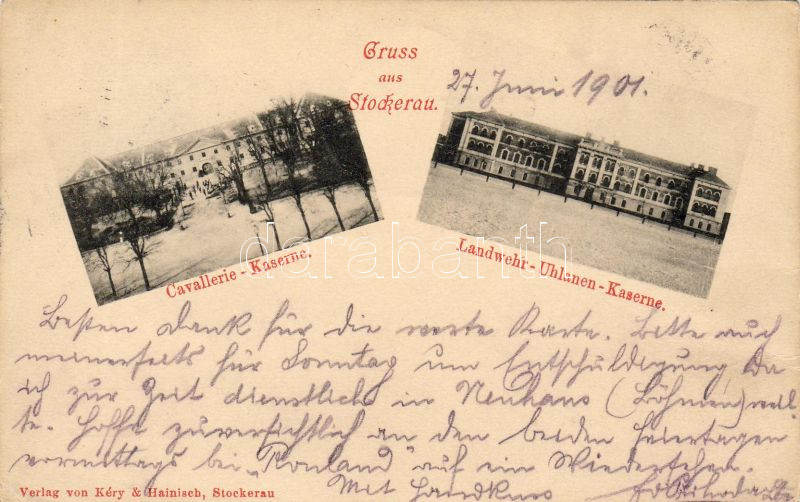 Gruss
aus
Stockerau.
27. Juni 1901.
Cavallerie - Kaserne.
Landwehr - Uhlanen - Kaserne.
darabanth
Besten Dank für die werte Karte. Bitte auch
meinerseits für Sonntag um Entschuldigung da
ich zur Zeit dienstlich in Neuhaus (Böhmen) weil-
te. Hoffe zuversichtlich an den beiden Feiertagen
vormittags bei „Ronland" auf ein Wiedersehen.
Mit Handkuss
Verlag von Kéry & Hainisch, Stockerau